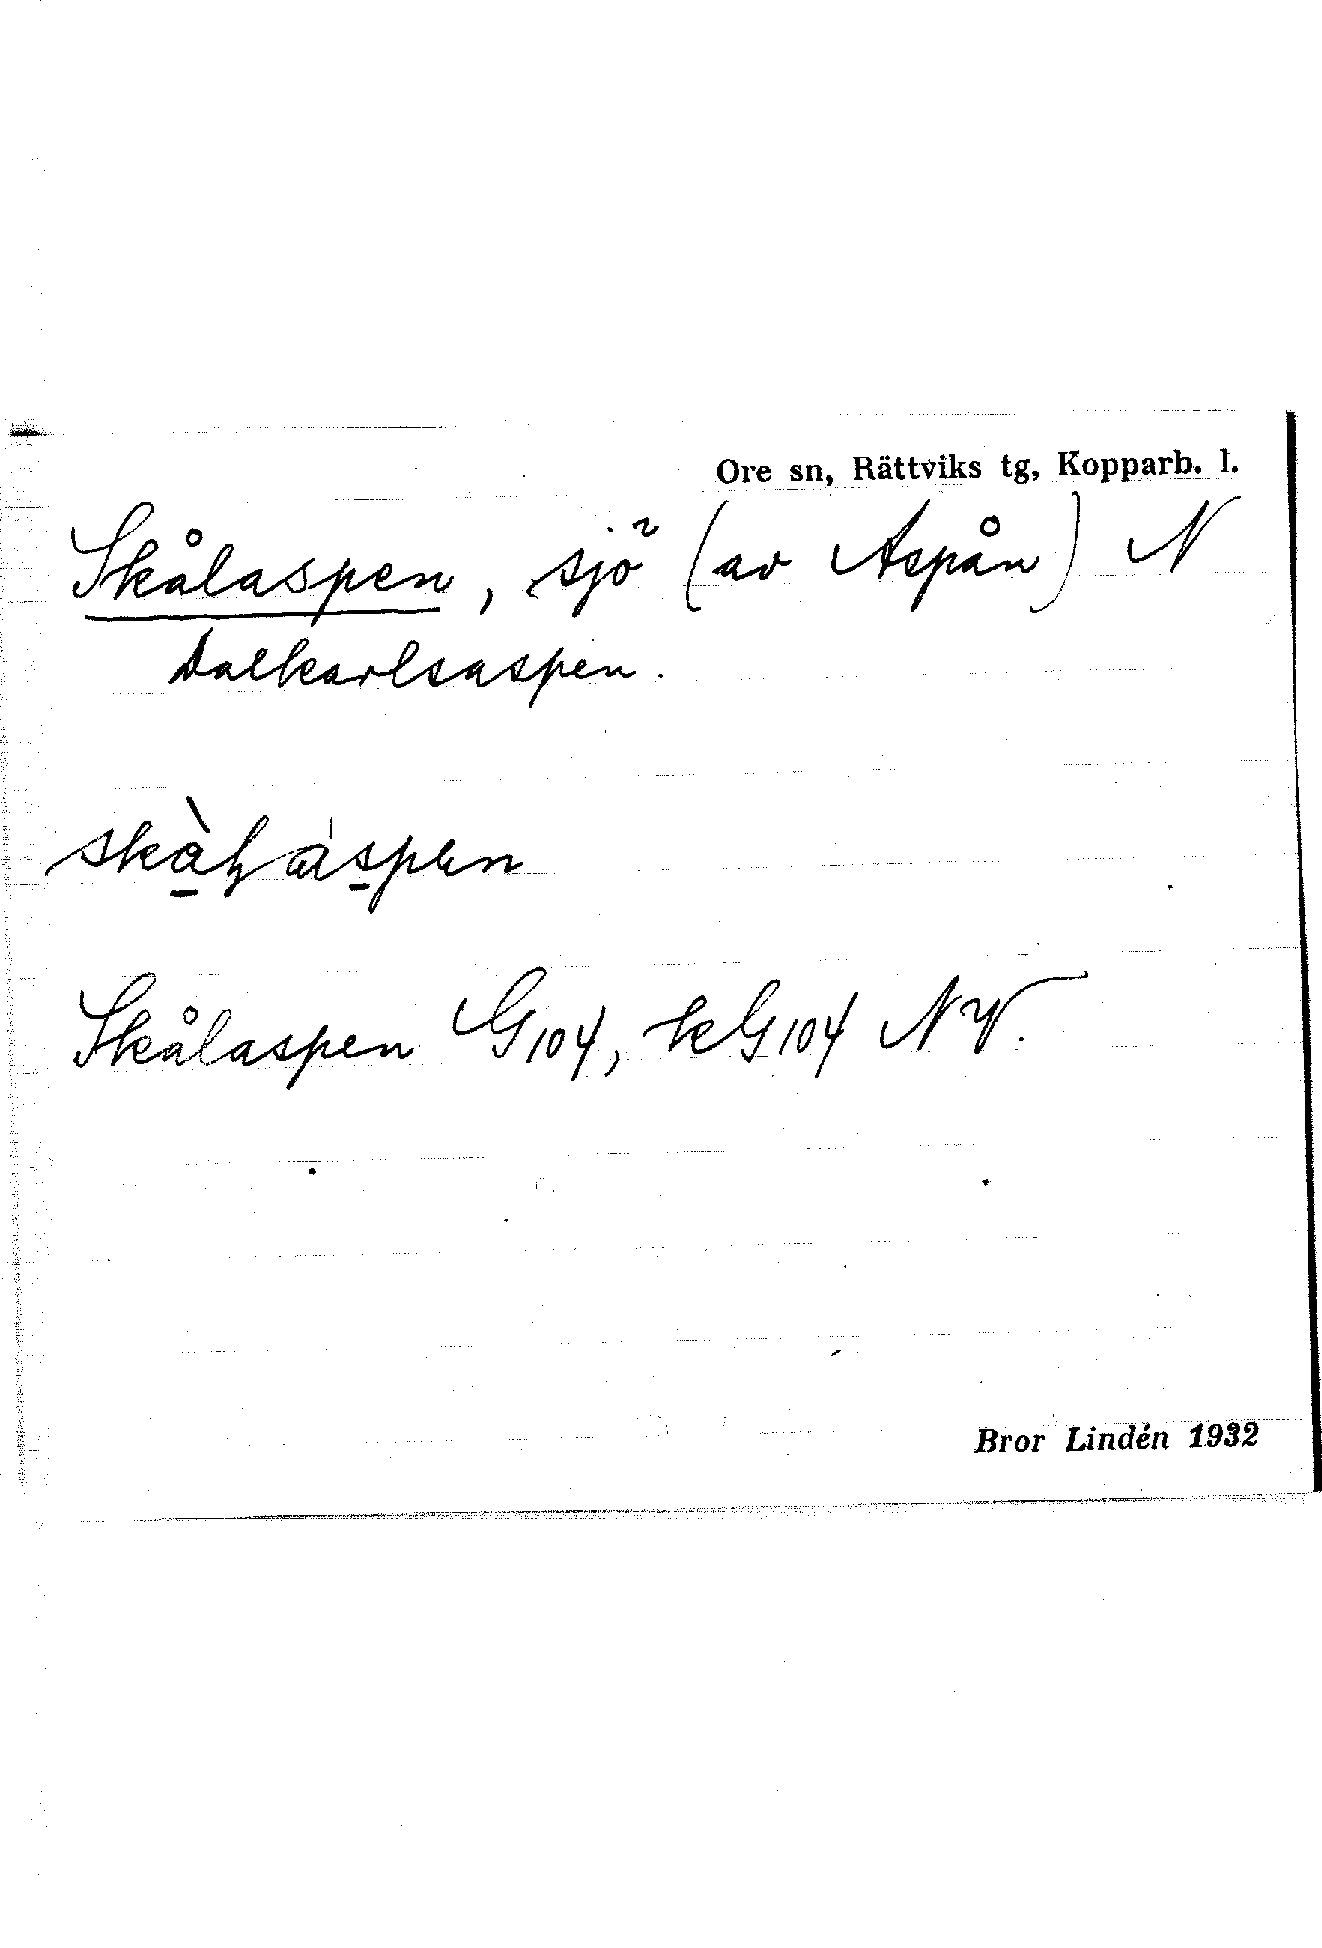 Ore sn, Rättviks tg, Kopparb. l.
Skålaspen, sjö (av Aspån) N
Dalkarlsaspen.
Skålaspen G104, kG104 NV.
Bror Lindén 1932